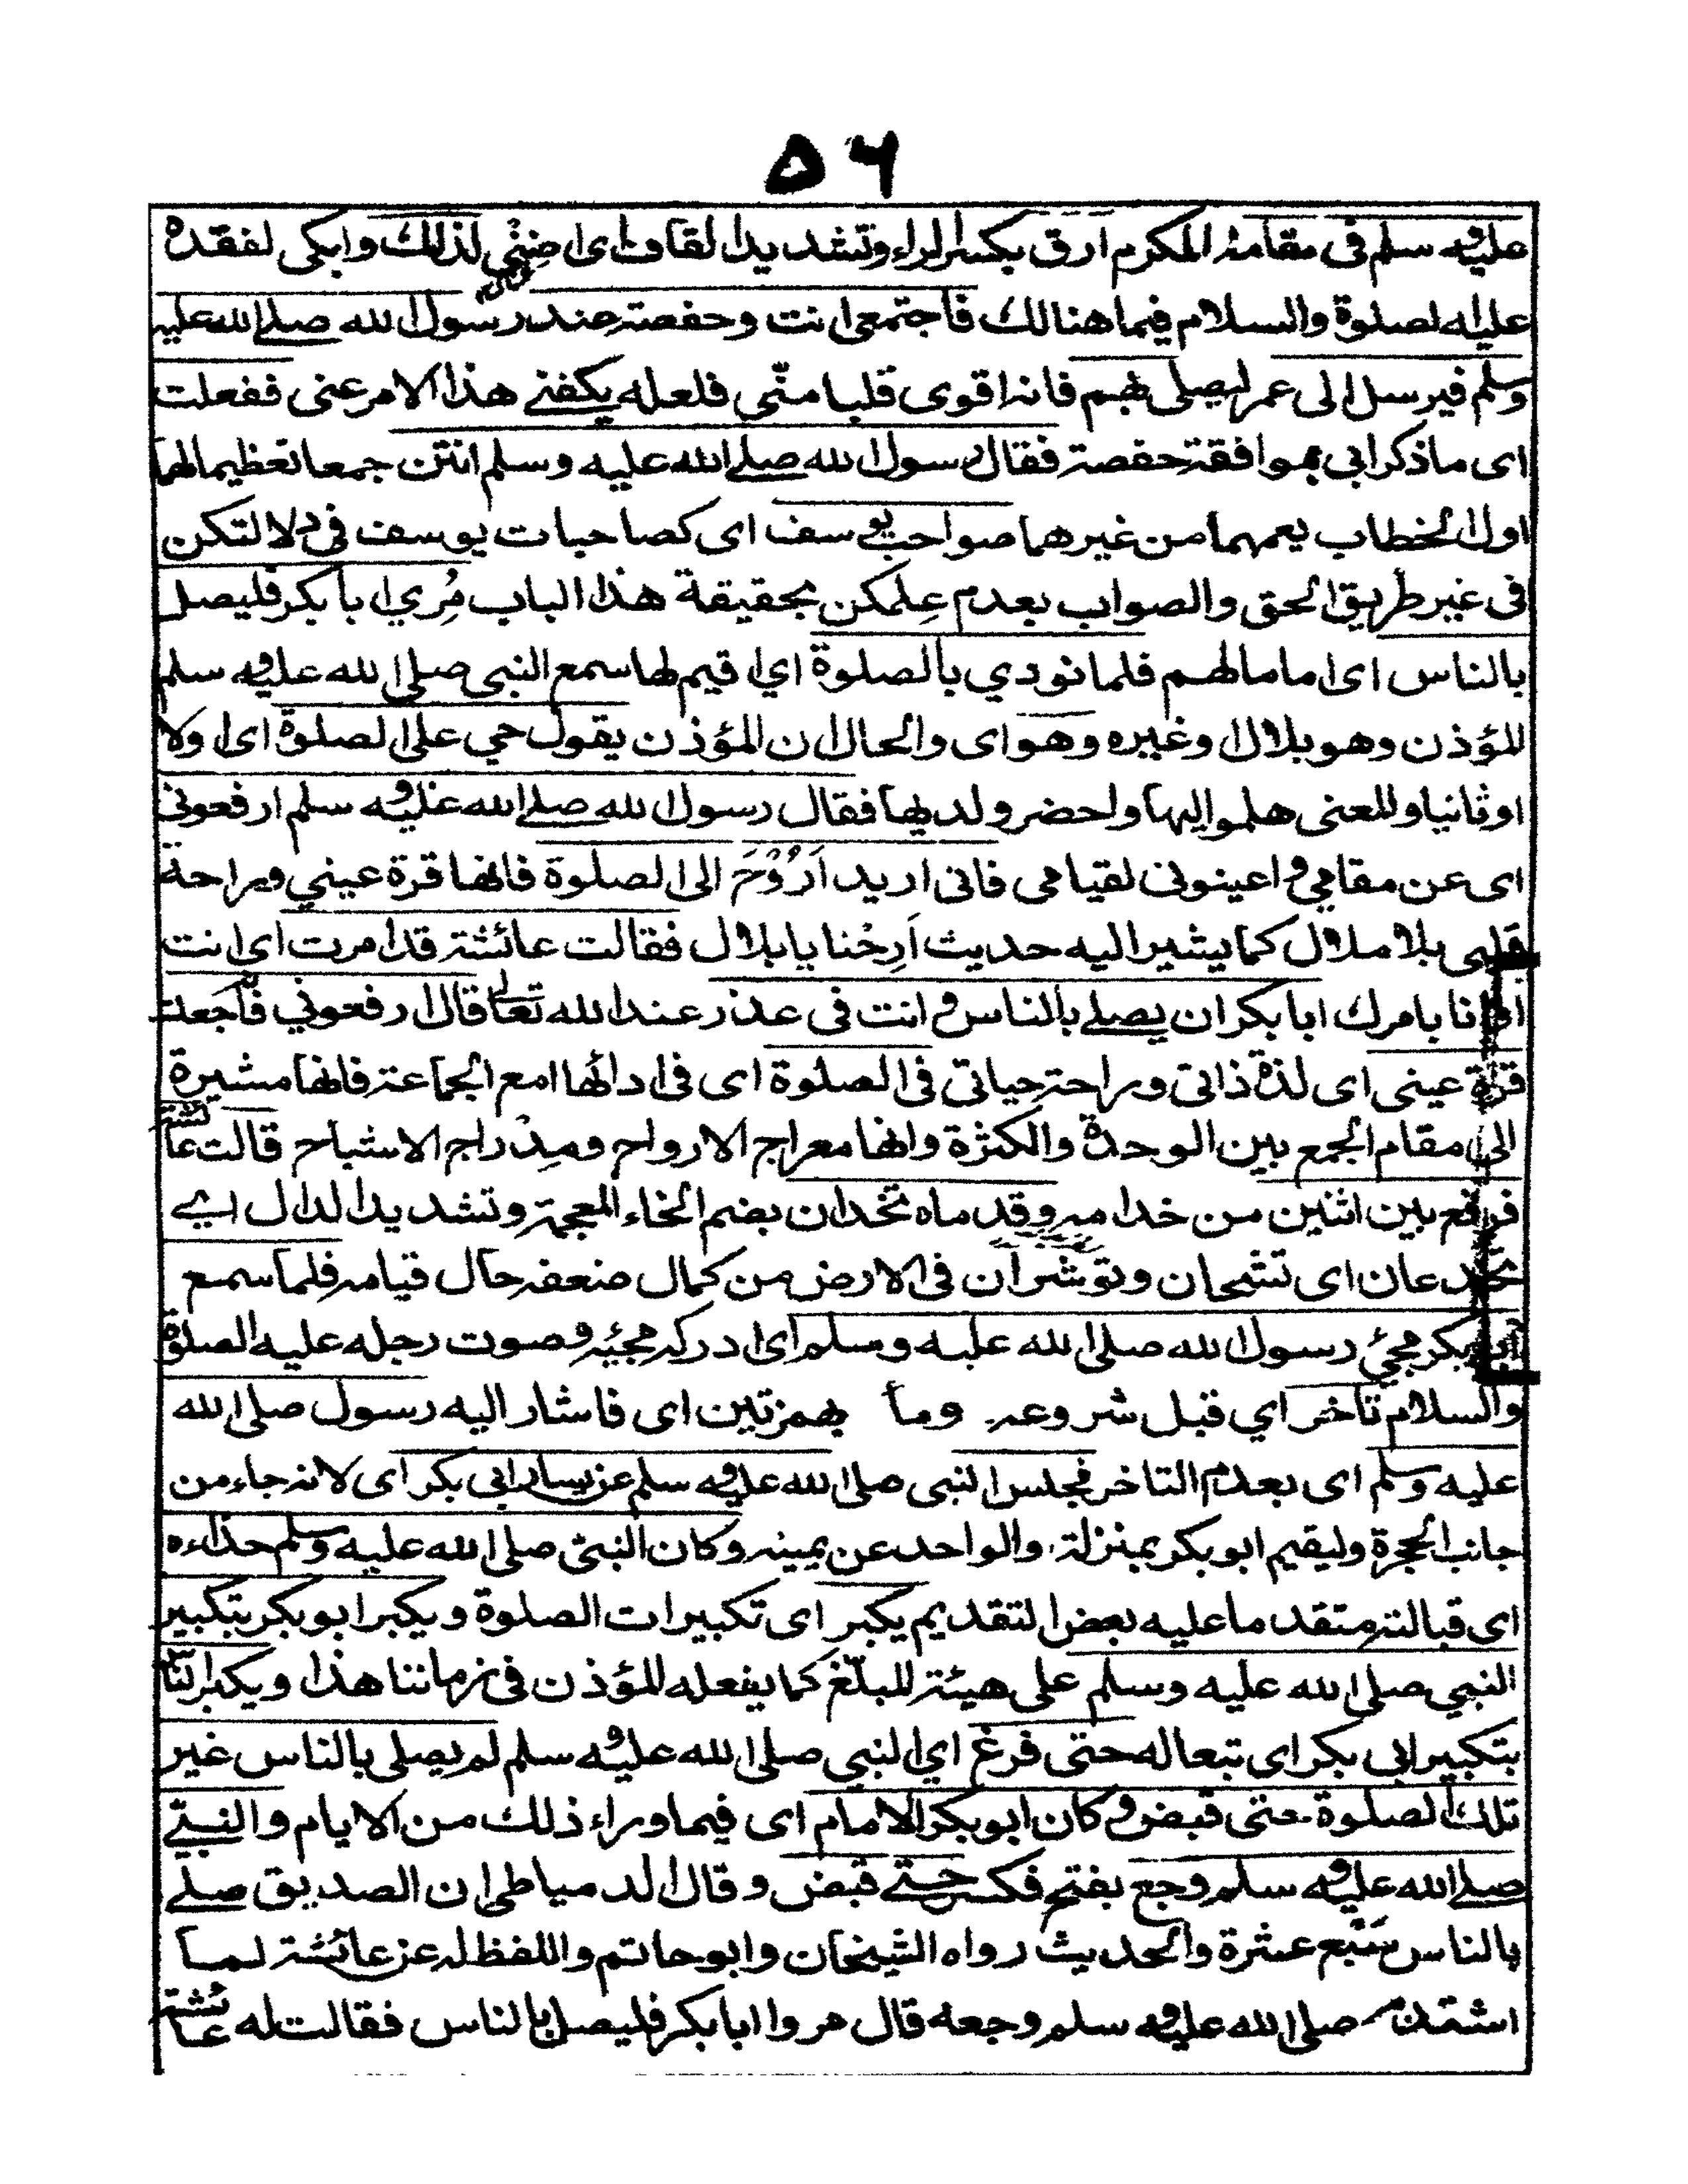 ٥٦
عليه وسلم في مقامه المكرم ارق بكسر الراء وتشديد القاف اى اضنى لذلك وابكى لفقده
عليه الصلوة والسلام فيما هنالك فاجتمعى انت وحفصة عند رسول الله صلى الله عليه
وسلم فيرسل الى عمر ليصلى بهم فانه اقوى قلبا منى فلعله يكفنى هذا الامر عنى ففعلت
اى ما ذكر ابى بموافقة حفصة فقال رسول الله صلى الله عليه وسلم انتن جمعا تعظيما لهما
اول الخطاب يعمهما من غيرهما صواحب يوسف اى كصاحبات يوسف فى دلالتكن
فى غير طريق الحق والصواب بعدم علمكن بحقيقة هذا الباب مُرِي ابا بكر فليصل
بالناس اى اماما لهم فلما نودي بالصلوة اي اقيم لها سمع النبى صلى الله عليه وسلم
المؤذن وهو بلال او غيره وهو اى والحال ان المؤذن يقول حي على الصلوة اى اولا
او ثانيا والمعنى هلموا اليها واحضروا لديها فقال رسول الله صلى الله عليه وسلم ارفعونى
اى عن مقامي واعينونى لقيامى فانى اريد اَرُوْحَ الى الصلوة فانها قرة عيني وراحة
قلبى بلا ملال كما يشير اليه حديث اَرِحْنا يا بلال فقالت عائشة قد امرت اى انت
انا بامرك ابا بكر ان يصلى بالناس وانت فى عذر عند الله تعالى قال ارفعوني فاجعلت
قرة عينى اى لذة ذاتى وراحة حياتى فى الصلوة اى فى ادائها مع الجماعة فانها مشيرة
الى مقام الجمع بين الوحدة والكثرة وانها معراج الارواح ومدراج الاشباح قالت عائشة
فرفع بين اثنين من خدامه وقدماه تخدان بضم الخاء المعجمة وتشديد الدال اي
تخدعان اى تنتحان وتوشران فى الارض من كمال ضعفه حال قيامه فلما سمع
ابو بكر مجئ رسول الله صلى الله عليه وسلم اى ادركه مجيئه وصوت رجله عليه الصلوة
والسلام تاخر اي قبل شروعه وما بهمزتين اى فاشار اليه رسول صلى الله
عليه وسلم اى بعدم التاخر فجلس النبى صلى الله عليه وسلم عن يسار ابى بكر اى لانه جاء من
جانب الحجرة وليقيم ابو بكر بمنزلة والواحد عن يمينه وكان النبى صلى الله عليه وسلم حذاءه
اى قبالته متقدما عليه بعض التقديم يكبر اى تكبيرات الصلوة ويكبر ابو بكر بتكبير
النبي صلى الله عليه وسلم على هيئة المبلّغ كما يفعله المؤذن فى زماننا هذا ويكبر الناس
بتكبير ابى بكر اى تبعا له حتى فرغ اي النبي صلى الله عليه وسلم لم يصلى بالناس غير
تلك الصلوة حتى قبض وكان ابو بكر الامام اى فيما وراء ذلك من الايام والنبى
صلى الله عليه وسلم وجع بفتح فكسر حتى قبض وقال الدمياطى ان الصديق صلى
بالناس سَبْعَ عشرة والحديث رواه الشيخان وابو حاتم واللفظ له عن عائشة لما
اشتد صلى الله عليه وسلم وجعه قال مروا ابا بكر فليصل بالناس فقالت له عائشة